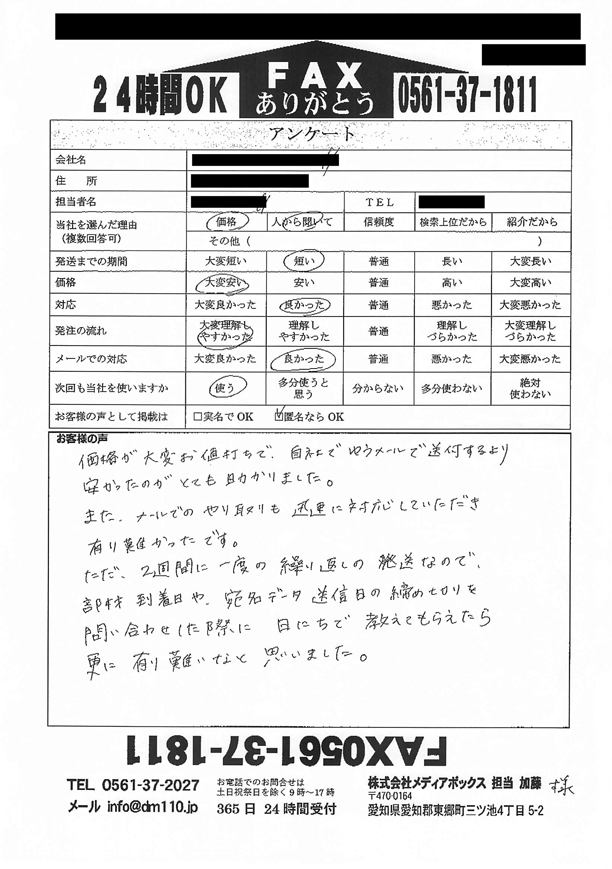 24時間OK
FAX
ありがとう
0561-37-1811
アンケート
会社名
住　所
担当者名　TEL
当社を選んだ理由（複数回答可）　価格　人から聞いて　信頼度　検索上位だから　紹介だから
その他（　）
発送までの期間　大変短い　短い　普通　長い　大変長い
価格　大変安い　安い　普通　高い　大変高い
対応　大変良かった　良かった　普通　悪かった　大変悪かった
発注の流れ　大変理解しやすかった　理解しやすかった　普通　理解しづらかった　大変理解しづらかった
メールでの対応　大変良かった　良かった　普通　悪かった　大変悪かった
次回も当社を使いますか　使う　多分使うと思う　分からない　多分使わない　絶対使わない
お客様の声として掲載は　□実名でOK　☑匿名ならOK
お客様の声
価格が大変お値打ちで、自社でゆうメールで送付するより
安かったのがとても助かりました。
また、メールでのやり取りも迅速に対応していただき
有り難かったです。
ただ、2週間に一度の繰り返しの発送なので、
部材到着日や、宛名データ送信日の締め切りを
問い合わせした際に日にちで教えてもらえたら
更に有り難いなと思いました。
FAX0561-37-1811
TEL 0561-37-2027
メール info@dm110.jp
お電話でのお問合せは
土日祝祭日を除く9時～17時
365日24時間受付
株式会社メディアボックス 担当 加藤 様
〒470-0164
愛知県愛知郡東郷町三ツ池4丁目5-2